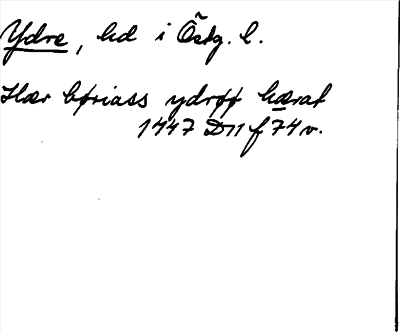 Ydre, hd i Östg. l.
Hær børiass ydrøø hærat
1447 D11 f 74 v.